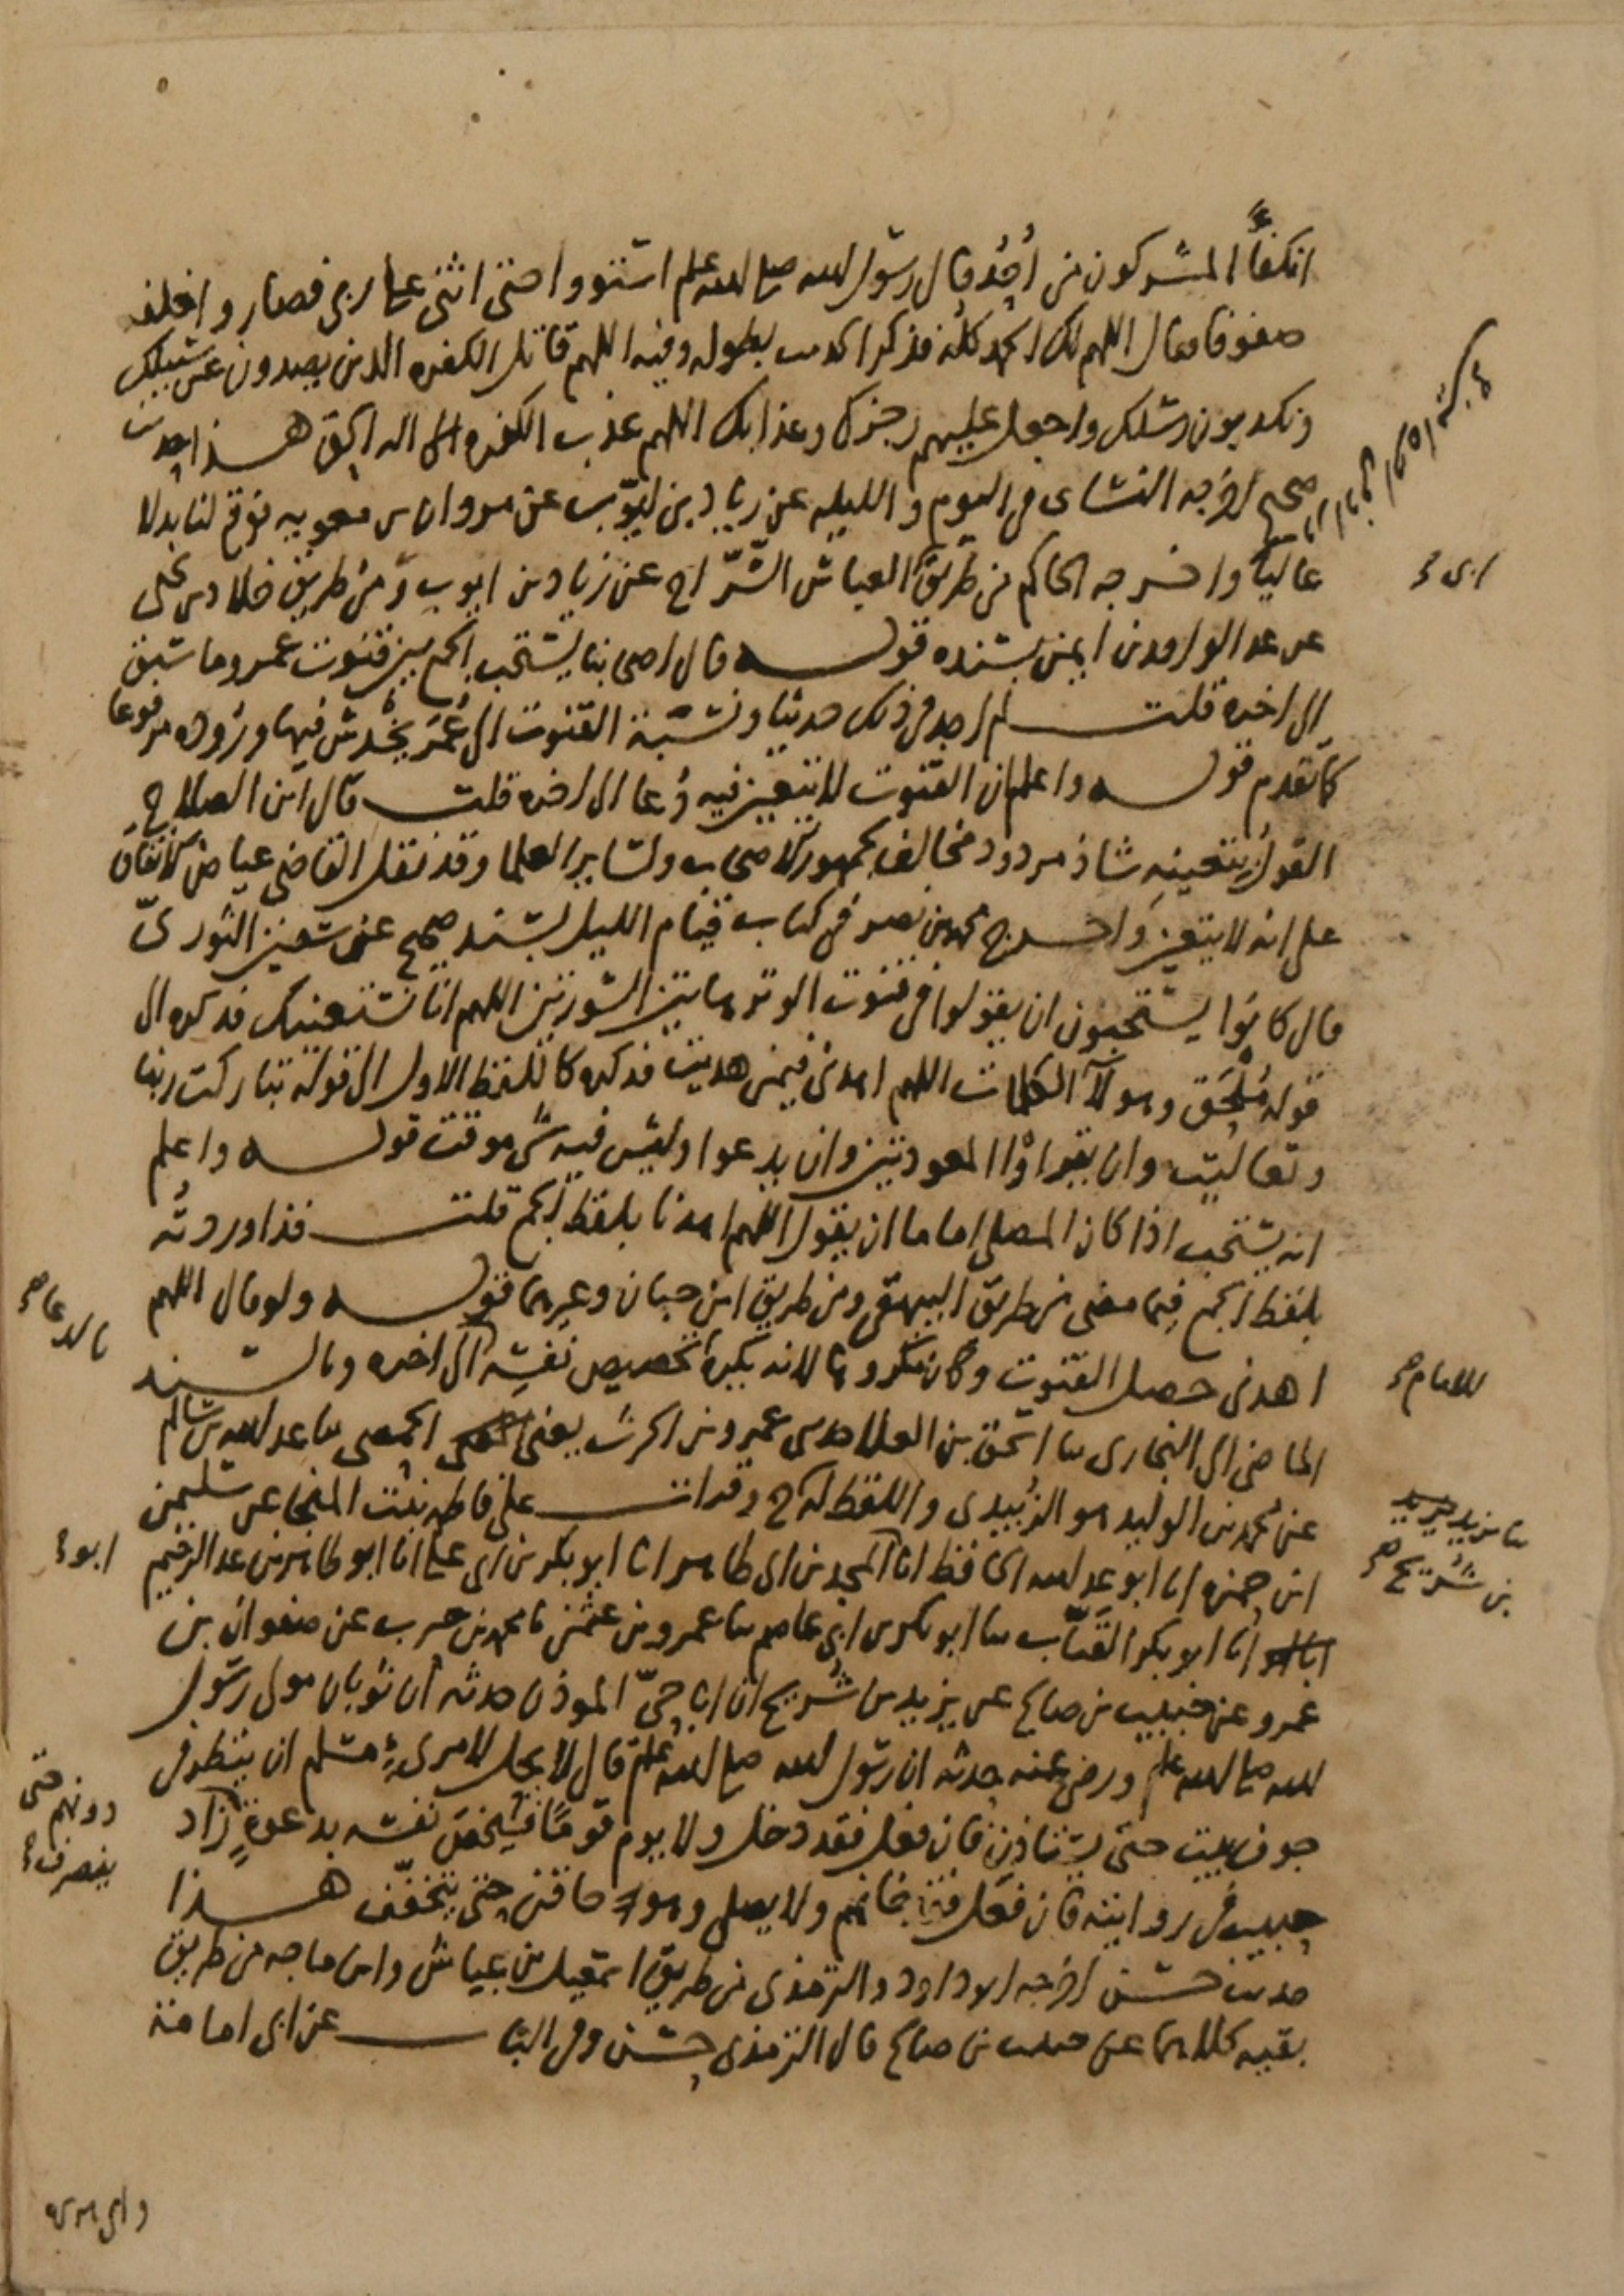 انكفأ المشركون من أُحُد قال رسول الله صلى الله عليه وسلم استووا حتى اثني على ربي فصاروا خلفه
صفوفا فقال اللهم لك الحمد كله فذكر الحديث بطوله وفيه اللهم قاتل الكفرة الذين يصدون عن سبيلك
ويكذبون رسلك واجعل عليهم رجزك وعذابك اللهم عذب الكفرة اله الحق هذا حديث
صحيح اخرجه النسائى في اليوم والليله عن زياد بن ايّوب عن مروان بن معويه فوقع لنا بدلا
عاليًا واخرجه الحاكم من طريق ابي العباس السّرّاج عن زياد بن ايوب ومن طريق خلاد بن يحيى
عن عبد الواحد بن ايمن بسنده قوله قال اصحابنا يستحب الجمع بين قنوت عمر وما سبق
الى اخره قلت لم اجد في ذلك حديثا ونسبة القنوت الى عُمَر يخدش فيها وروده مرفوعا
كما تقدم قوله واعلم ان القنوت لا يتعين فيه دُعا الى اخره قلت قال ابن الصلاح
القول بتعينه شاذ مردود مخالف لجمهور الاصحاب ولسائر العلما وقد نقل القاضي عياض الاتفاق
على انه لا يتعين واخرج محمد بن نصر في كتاب قيام الليل بسند صحيح عن سفين الثوريّ
قال كانوا يستحبون ان يقولوا في قنوت الوتر هاتين السورتين اللهم انا نستعينك فذكره الى
قوله مُلْحَق وهولآ الكلمات اللهم اهدنى فيمن هديت فذكره كاللفظ الاول الى قوله تباركت ربنا
وتعاليت وان يقراوا المعوذتين وان يدعوا وليس فيه شى موقت قوله واعلم
انه يستحب اذا كان المصلى اماما ان يقول اللهم اهدنا بلفظ الجمع قلت قد اوردته
بلفظ الجمع فيما مضى من طريق البيهقى ومن طريق ابن حبان وغيرهما قوله ولو قال اللهم
اهدنى حصل القنوت وكان مكروها لانه يكره للامام تخصيص نفسه بالدعا الى اخره وبالسند
الماضى الى البخارى ثنا اسحق بن العلا حدثنى عمرو بن الحرث يعنى الحمصى ثنا عبد الله بن سالم
عن محمد بن الوليد هو الزُبيدى ثنا يزيد بن شُرَيح واللفظ له ح وقرات على فاطمه بنت المنجا عن سليمن
ابن حمزه انا ابو عبد الله الحافظ انا ابو المجد بن ابى طاهر انا ابو بكر بن ابى على انا ابو طاهر بن عبد الرحيم
انا ابو بكر القَبّاب ثنا ابو بكر بن ابى عاصم ثنا عمرو بن عثمن ثنا محمد بن حرب عن صفوان بن
عمرو عن حبيب بن صالح عن يزيد بن شُريح ان ابا حيّ المؤذن حدثه ان ثوبان مولى رسول
الله صلى الله عليه وسلم ورضي عنه حدثه ان رسول الله صلى الله عليه وسلم قال لا يحل لامرىء مسلم ان ينظر في
جوف بيت حتى يستاذن فان فعل فقد دخل ولا يوم قومًا فيخص نفسه بدعوةٍ دونهم حتى ينصرف زاد
حبيب في روايته فان فعل فقد خانهم ولا يصلى وهو حاقن حتى يتخفّف هذا
حديث حسن اخرجه ابو داود والترمذى من طريق اسمعيل بن عياش وابن ماجه من طريق
بقيه كلاهما عن حبيب بن صالح قال الترمذى حسن وفي الباب عن ابى امامة
وابى هريرة